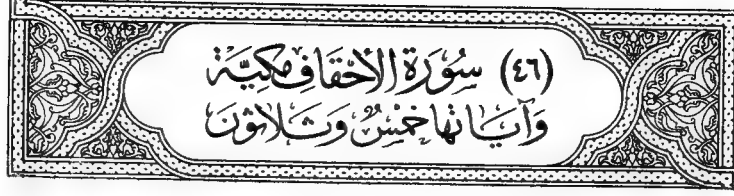 (٤٦) سُوْرَةُ الأَحْقَافِ مَكِيَّة
وَآيَاتُهَا خَمْسٌ وَثَلَاثُونَ